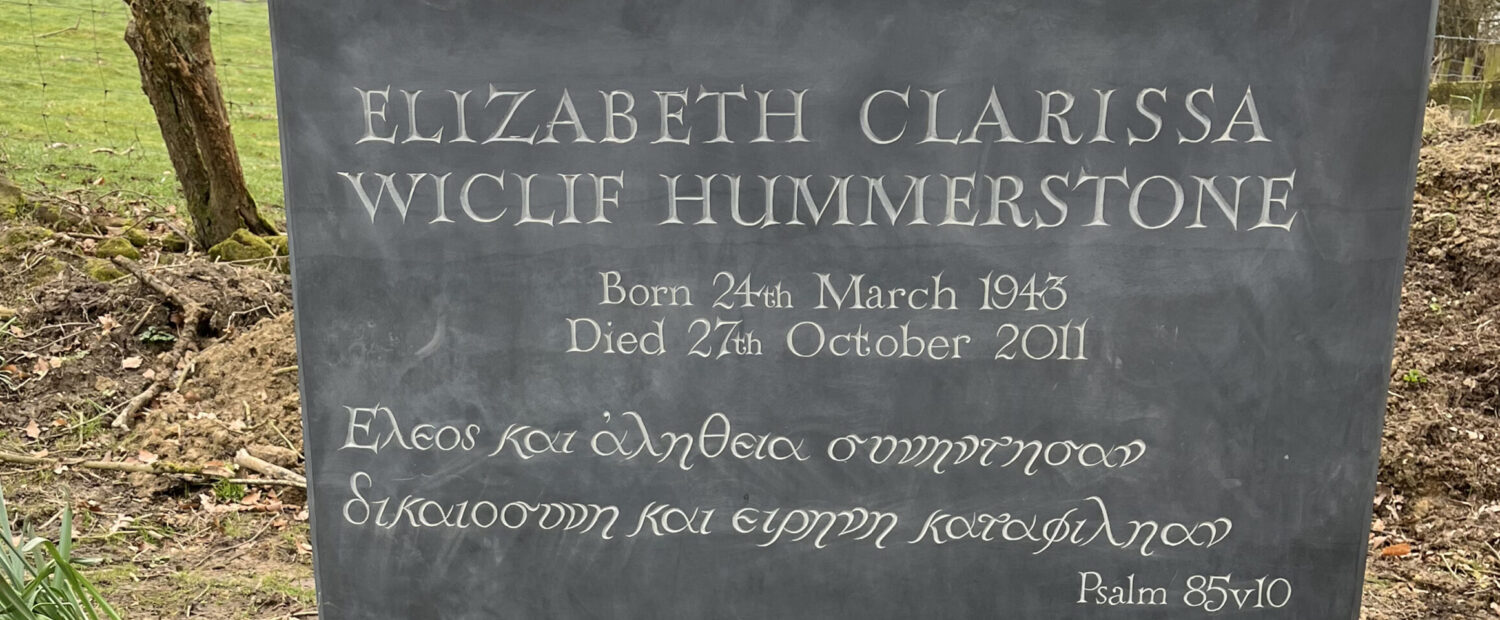 ELIZABETH CLARISSA
WICLIF HUMMERSTONE
Born 24th March 1943
Died 27th October 2011
Ελεος και ἀληθεια συνηντησαν
δικαιοσυνη και ειρηνη καταφιληαν
Psalm 85v10